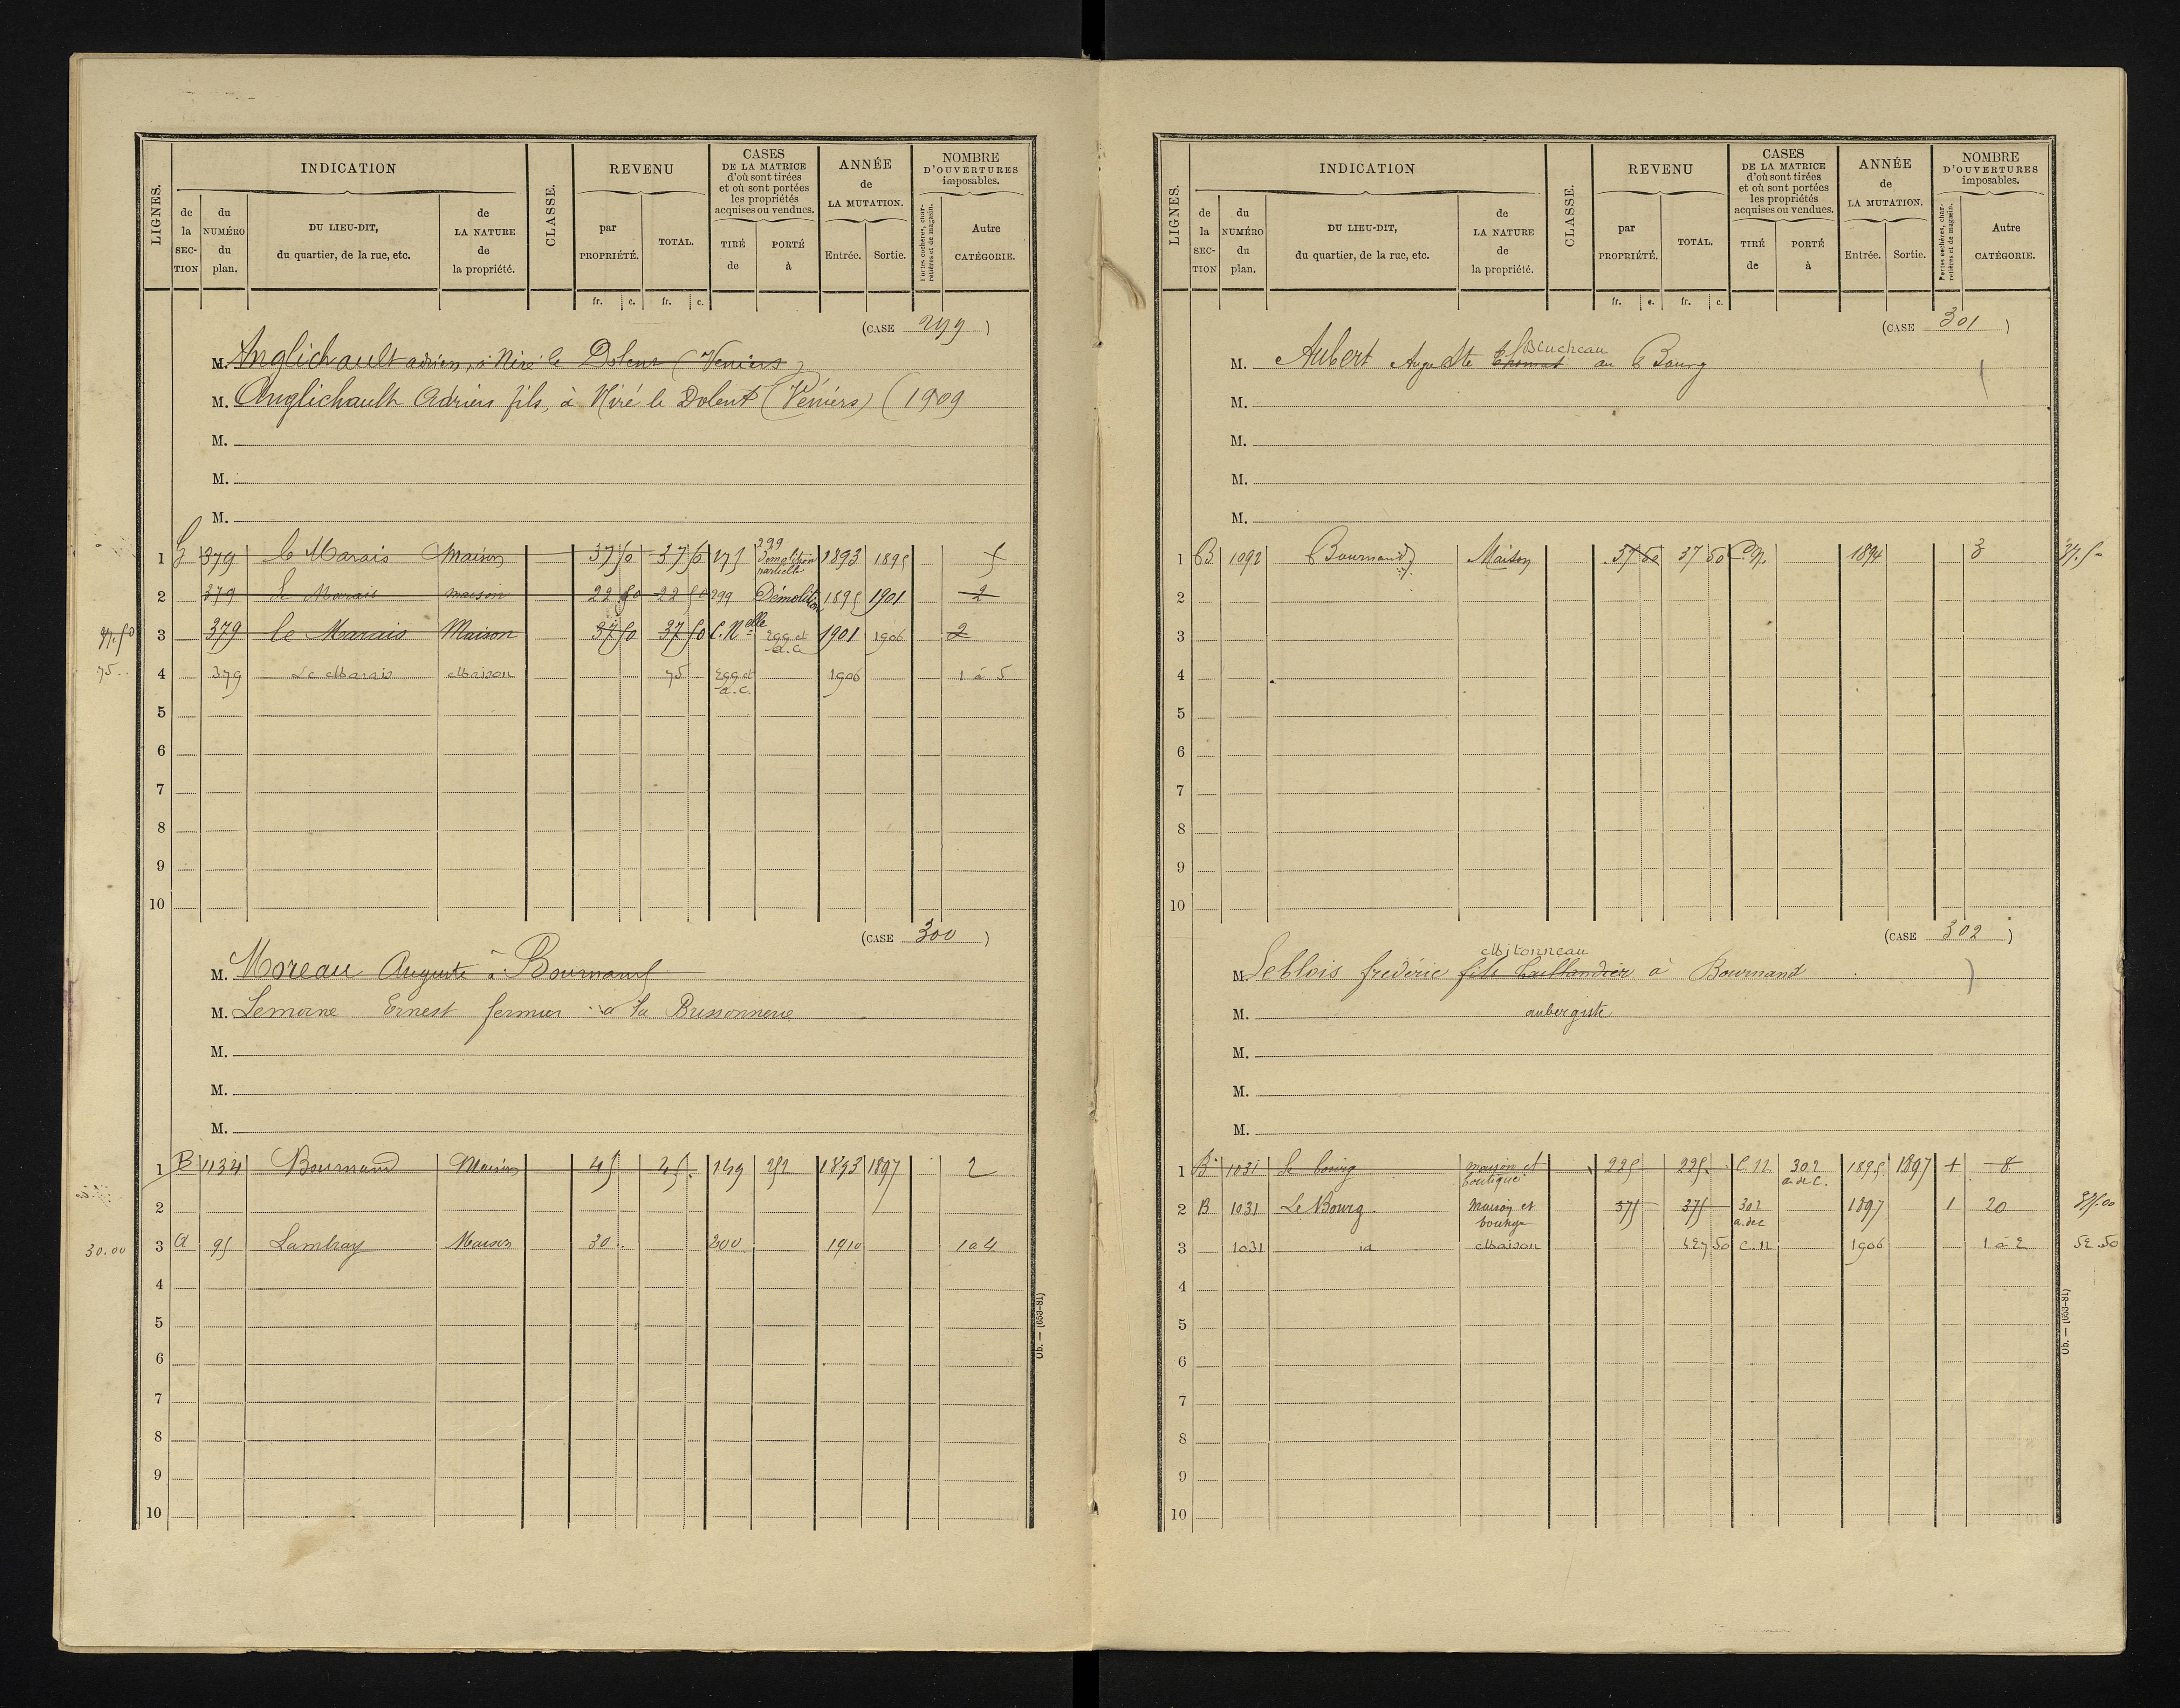 LIGNES.
INDICATION
CLASSE.
REVENU
CASES
DE LA MATRICE
d'où sont tirées
et où sont portées
les propriétés
acquises ou vendues.
ANNÉE
de
LA MUTATION.
NOMBRE
D'OUVERTURES
imposables.
de la SECTION
du NUMÉRO du plan.
DU LIEU-DIT,
du quartier, de la rue, etc.
de LA NATURE de la propriété.
par PROPRIÉTÉ.
TOTAL.
TIRÉ de
PORTÉ à
Entrée.
Sortie.
Portes cochères, charretières et de magasin.
Autre CATÉGORIE.
fr. c. fr. c.
(CASE 299)
M. Anglichault adrien, à Niré le Dolent (Veniers)
M. Anglichault Adrien fils, à Niré le Dolent (Véniers) (1909
M.
M.
M.
1 379 le Marais Maison 37 50 37 50 175 299 Démolition partielle 1893 1895
2 379 Le Marais maison 22 50 22 50 299 Démolition 1895 1901 2
37.50 3 379 le Marais Maison 37 50 37 50 C. Nelle 299 et a.c. 1901 1906 2
75.. 4 379 Le Marais Maison 75 299 et a.c. 1906 1 à 5
5
6
7
8
9
10
(CASE 300)
M. Moreau Auguste à Bournand
M. Lemoine Ernest fermier à la Bussonnerie
M.
M.
M.
1 B 1134 Bournand Maison 45 45. 149 252 1893 1897 2
2
30.00 3 a 95 Lambray Maison 30.. 200 1910 1 a 4
4
5
6
7
8
9
10
Ob. — (653-81)
LIGNES.
INDICATION
CLASSE.
REVENU
CASES
DE LA MATRICE
d'où sont tirées
et où sont portées
les propriétés
acquises ou vendues.
ANNÉE
de
LA MUTATION.
NOMBRE
D'OUVERTURES
imposables.
de la SECTION
du NUMÉRO du plan.
DU LIEU-DIT,
du quartier, de la rue, etc.
de LA NATURE de la propriété.
par PROPRIÉTÉ.
TOTAL.
TIRÉ de
PORTÉ à
Entrée.
Sortie.
Portes cochères, charretières et de magasin.
Autre CATÉGORIE.
fr. c. fr. c.
(CASE 301)
Blucheau
M. Aubert Auguste au Bourg
M.
M.
M.
M.
1 B 1092 Bournand Maison 37 50 37 50 C.N. 1894 3 37.50
2
3
4
5
6
7
8
9
10
(CASE 302)
Mitonneau
M. Leblois frédéric fils Taillandier à Bournand
M. aubergiste
M.
M.
M.
1 B 1031 Le bourg maison et boutique 225 225. C.N. 302 a. de C. 1895 1897 1 8
2 B 1031 Le Bourg. Maison et boutique 375 375 302 a. de c 1897 1 20 375.00
3 1031 id Maison 50 C.N 1906 1 à 2 52.50
4
5
6
7
8
9
10
Ob. — (653-81)